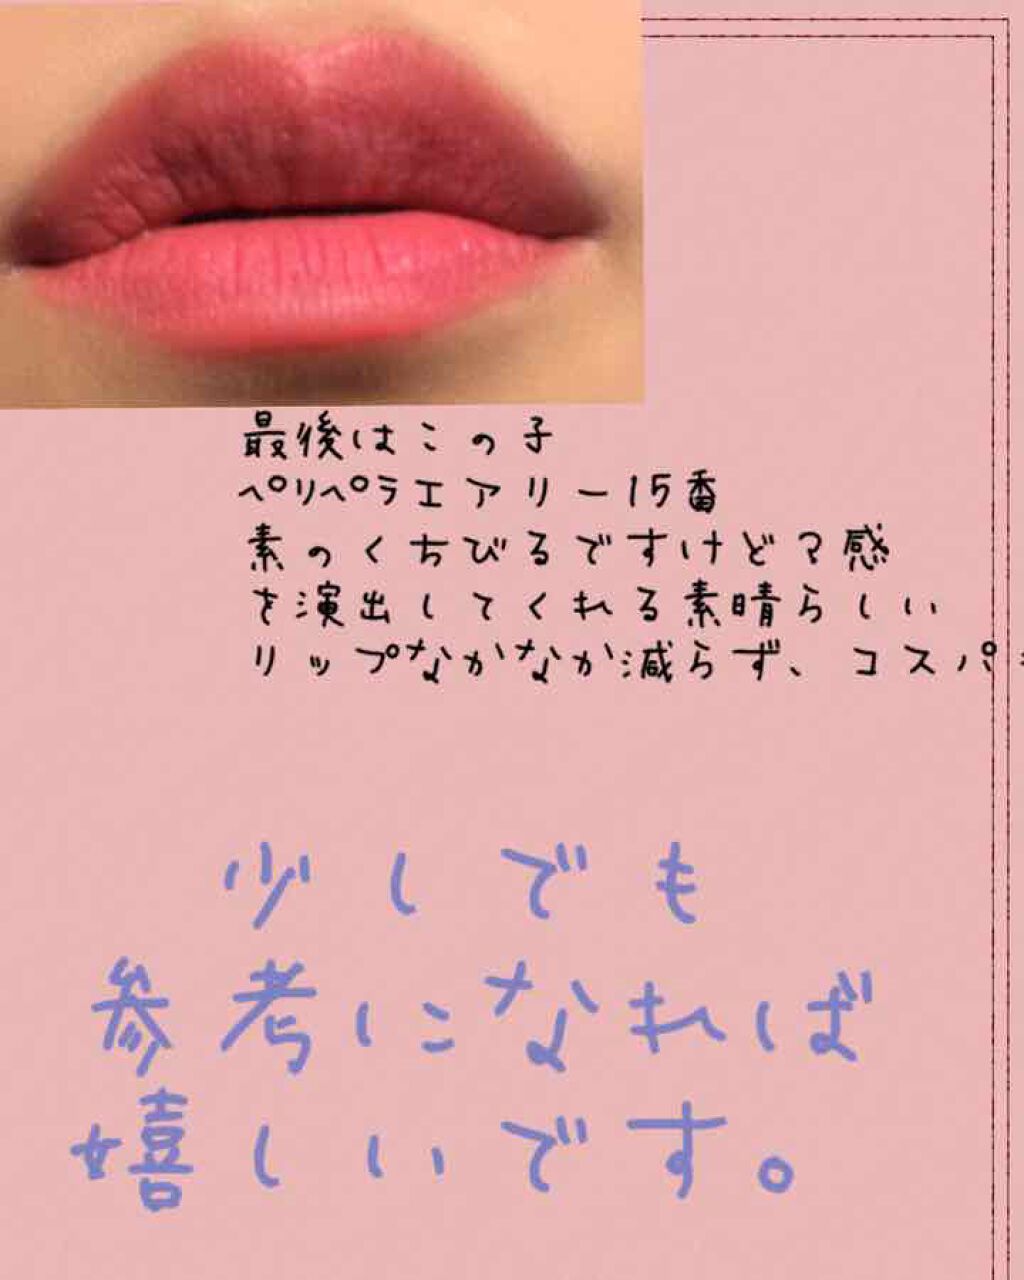 最後はこの子
ペリペラエアリー15番
素のくちびるですけど?感
を演出してくれる素晴らしい
リップなかなか減らず、コスパ
少しでも
参考になれば
嬉しいです。